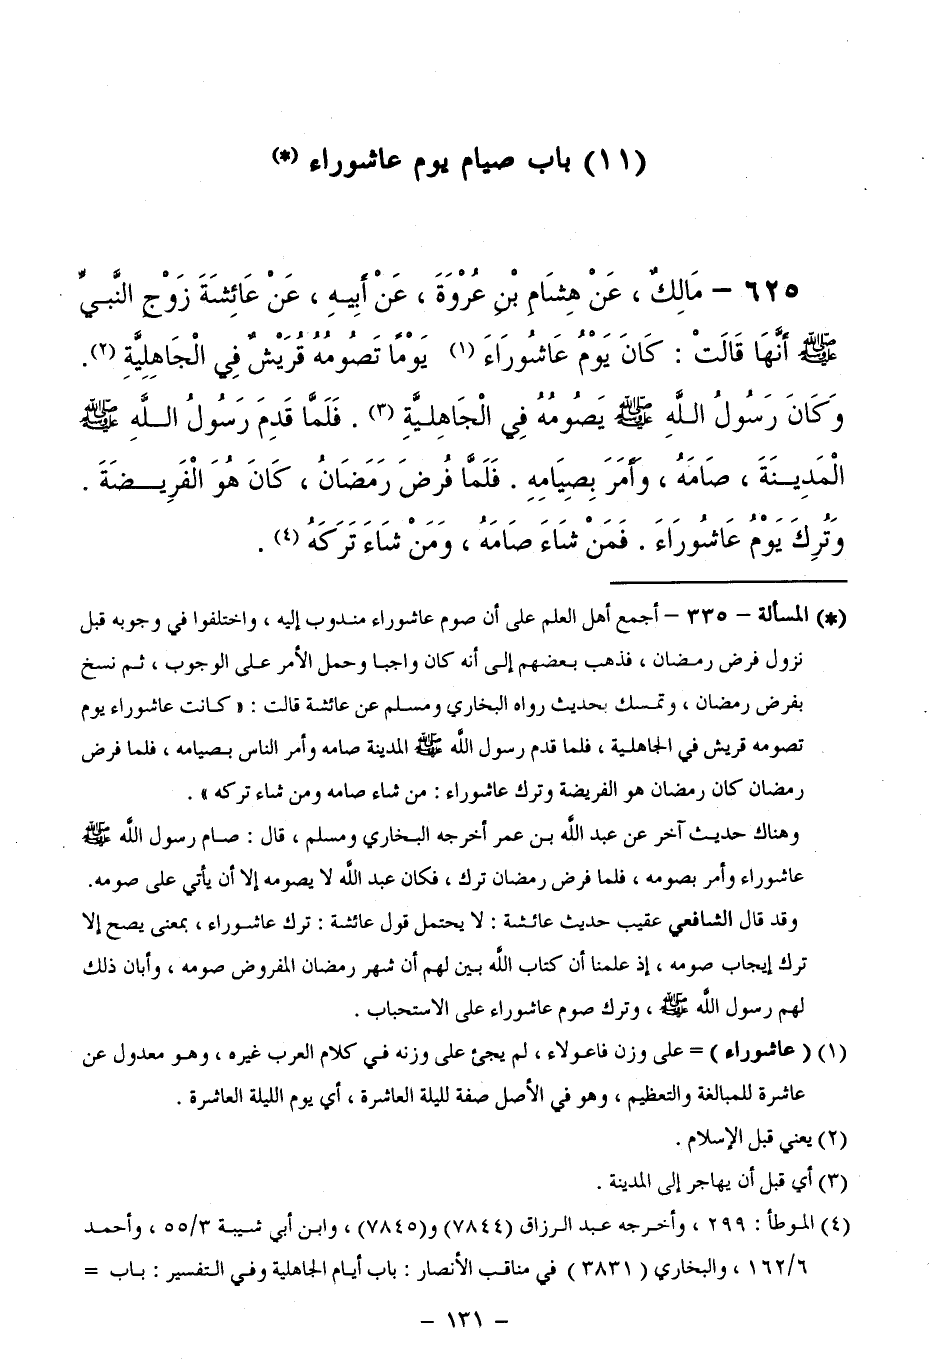 (١١) باب صيام يوم عاشوراء (*)
٦٢٥ – مَالِكٌ ، عَنْ هِشَامِ بْنِ عُرْوَةَ ، عَنْ أَبِيهِ ، عَنْ عَائِشَةَ زَوْجِ النَّبِيِّ
ﷺ أَنَّهَا قَالَتْ : كَانَ يَوْمُ عَاشُورَاءَ (١) يَوْمًا تَصُومُهُ قُرَيْشٌ فِي الْجَاهِلِيَّةِ (٢).
وَكَانَ رَسُولُ اللَّهِ ﷺ يَصُومُهُ فِي الْجَاهِلِيَّةِ (٣) . فَلَمَّا قَدِمَ رَسُولُ اللَّهِ ﷺ
الْمَدِينَةَ ، صَامَهُ ، وَأَمَرَ بِصِيَامِهِ . فَلَمَّا فُرِضَ رَمَضَانُ ، كَانَ هُوَ الْفَرِيضَةَ .
وَتُرِكَ يَوْمُ عَاشُورَاءَ . فَمَنْ شَاءَ صَامَهُ ، وَمَنْ شَاءَ تَرَكَهُ (٤) .
(*) المسألة – ٣٣٥ – أجمع أهل العلم على أن صوم عاشوراء مندوب إليه ، واختلفوا في وجوبه قبل
نزول فرض رمضان ، فذهب بعضهم إلى أنه كان واجبا وحمل الأمر على الوجوب ، ثم نسخ
بفرض رمضان ، وتمسك بحديث رواه البخاري ومسلم عن عائشة قالت : « كانت عاشوراء يوم
تصومه قريش في الجاهلية ، فلما قدم رسول اللَّه ﷺ المدينة صامه وأمر الناس بصيامه ، فلما فرض
رمضان كان رمضان هو الفريضة وترك عاشوراء : من شاء صامه ومن شاء تركه » .
وهناك حديث آخر عن عبد اللَّه بن عمر أخرجه البخاري ومسلم ، قال : صام رسول اللَّه ﷺ
عاشوراء وأمر بصومه ، فلما فرض رمضان ترك ، فكان عبد اللَّه لا يصومه إلا أن يأتي على صومه.
وقد قال الشافعي عقيب حديث عائشة : لا يحتمل قول عائشة : ترك عاشوراء ، بمعنى يصح إلا
ترك إيجاب صومه ، إذ علمنا أن كتاب اللَّه بين لهم أن شهر رمضان المفروض صومه ، وأبان ذلك
لهم رسول اللَّه ﷺ ، وترك صوم عاشوراء على الاستحباب .
(١) ( عاشوراء ) = على وزن فاعولاء ، لم يجئ على وزنه في كلام العرب غيره ، وهو معدول عن
عاشرة للمبالغة والتعظيم ، وهو في الأصل صفة لليلة العاشرة ، أي يوم الليلة العاشرة .
(٢) يعني قبل الإسلام .
(٣) أي قبل أن يهاجر إلى المدينة .
(٤) الموطأ : ٢٩٩ ، وأخرجه عبد الرزاق (٧٨٤٤) و(٧٨٤٥) ، وابن أبي شيبة ٥٥/٣ ، وأحمد
١٦٢/٦ ، والبخاري ( ٣٨٣١ ) في مناقب الأنصار : باب أيام الجاهلية وفي التفسير : باب =
– ١٣١ –